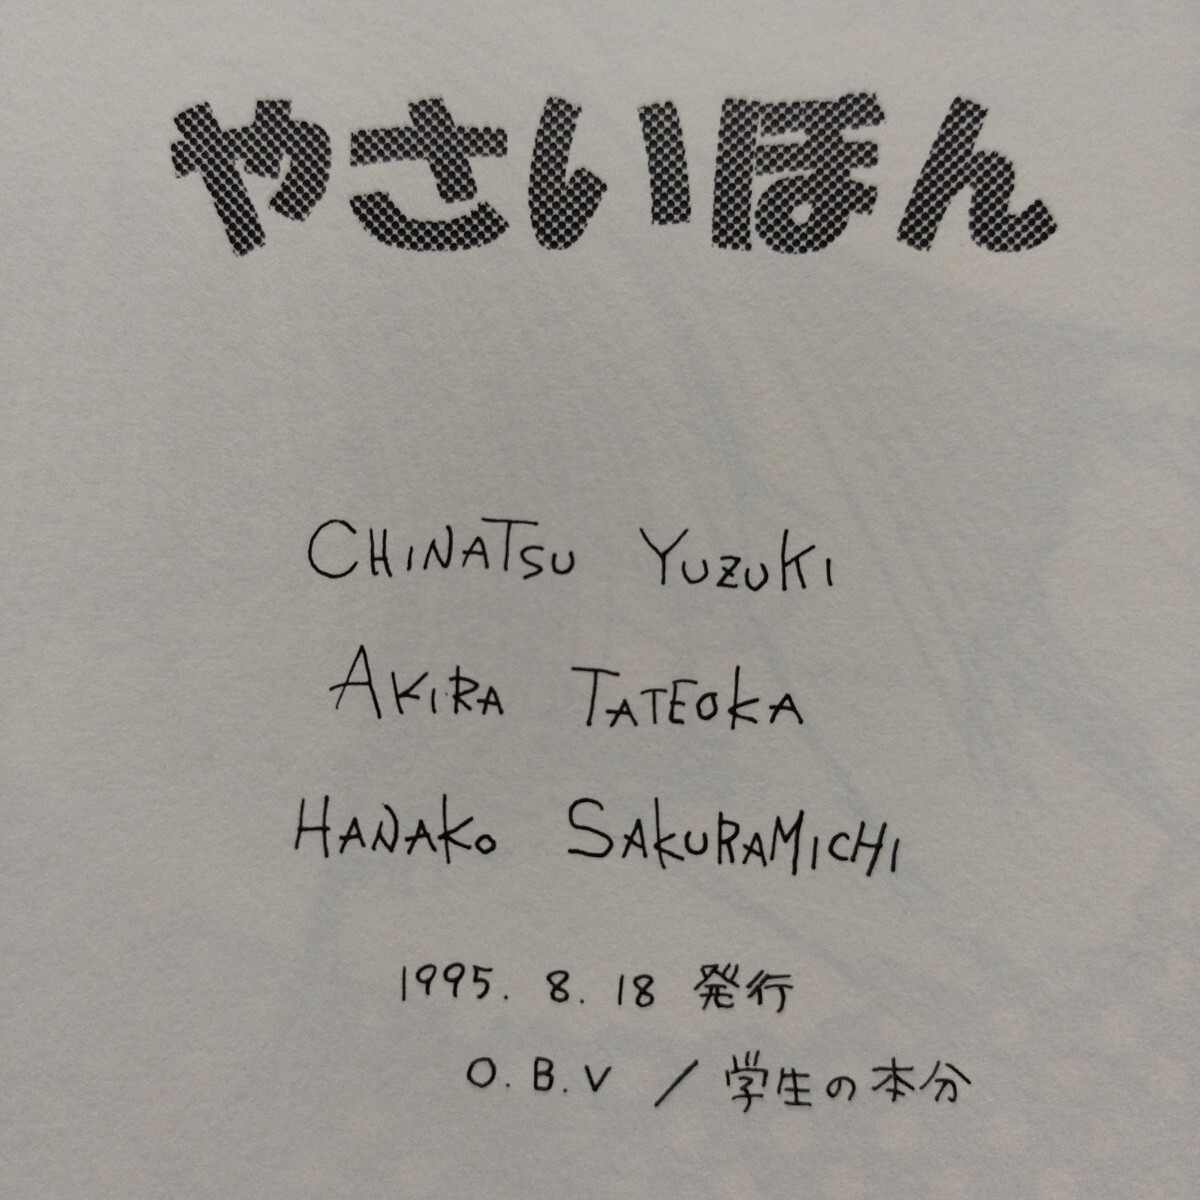 やさいほん
CHINATSU YUZUKI
AKIRA TATEOKA
HANAKO SAKURAMICHI
1995. 8. 18 発行
O. B. V / 学生の本分